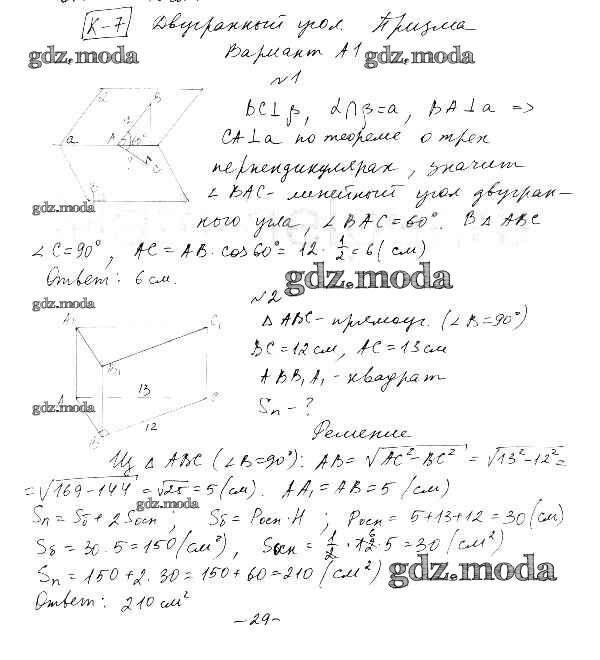 К-7 Двугранный угол. Призма
gdz.moda Вариант А1 gdz.moda
№1
BC⊥β, α∩β=a, BA⊥a =>
CA⊥a по теореме о трех
перпендикулярах, значит
∠BAC- линейный угол двугран-
ного угла, ∠BAC=60°. В △ABC
∠C=90°, AC=AB·cos60°=12·1/2=6(см)
Ответ: 6 см.
α
B
a
A
60°
C
gdz.moda
gdz.moda
№2
gdz.moda
△ABC-прямоуг. (∠B=90°)
BC=12см, AC=13см
ABB₁A₁-квадрат
Sп-?
A₁
C₁
B₁
A
13
C
gdz.moda
12
Решение
Из △ABC (∠B=90°): AB=√AC²-BC²=√13²-12²=
=√169-144=√25=5(см). AA₁=AB=5(см)
gdz.moda
Sп=Sб+2Sосн; Sб=Pосн·H; Pосн=5+13+12=30(см)
Sб=30·5=150(см²), Sосн=1/2·12·5=30(см²)
6
Sп=150+2·30=150+60=210(см²)
gdz.moda
Ответ: 210см²
-29-